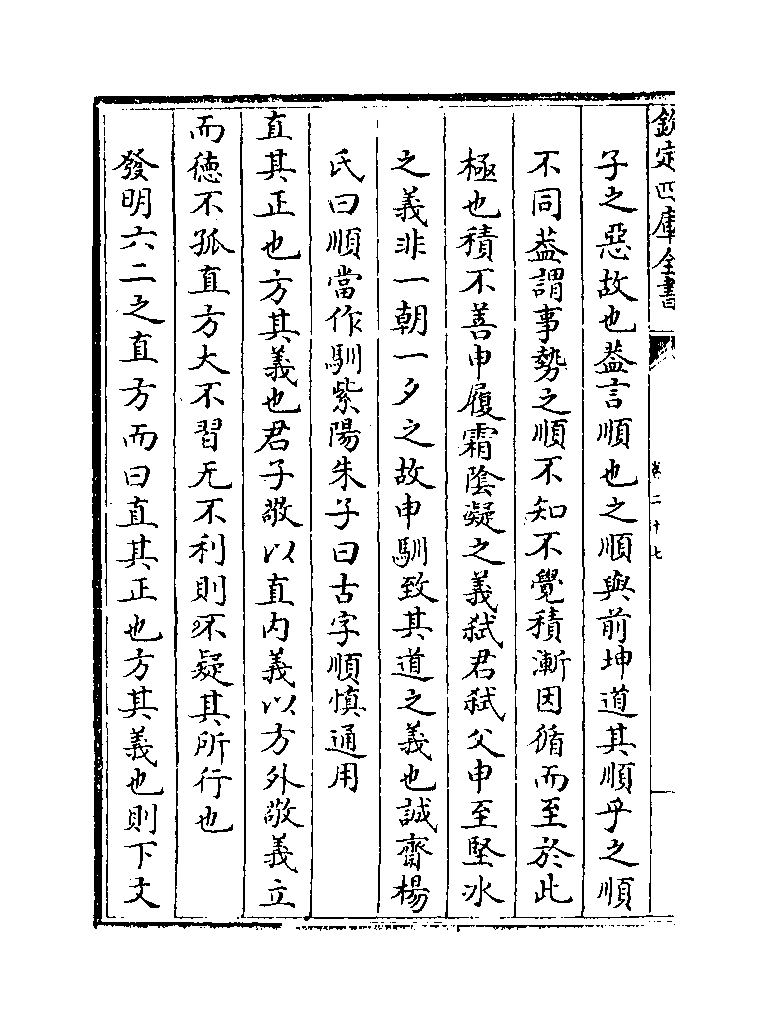 欽定四庫全書
卷二十七
子之惡故也葢言順也之順與前坤道其順乎之順
不同葢謂事勢之順不知不覺積漸因循而至於此
極也積不善申履霜隂凝之義弑君弑父申至堅冰
之義非一朝一夕之故申馴致其道之義也誠齋楊
氏曰順當作馴紫陽朱子曰古字順慎通用
直其正也方其義也君子敬以直内義以方外敬義立
而德不孤直方大不習无不利則不疑其所行也
發明六二之直方而曰直其正也方其義也則下文